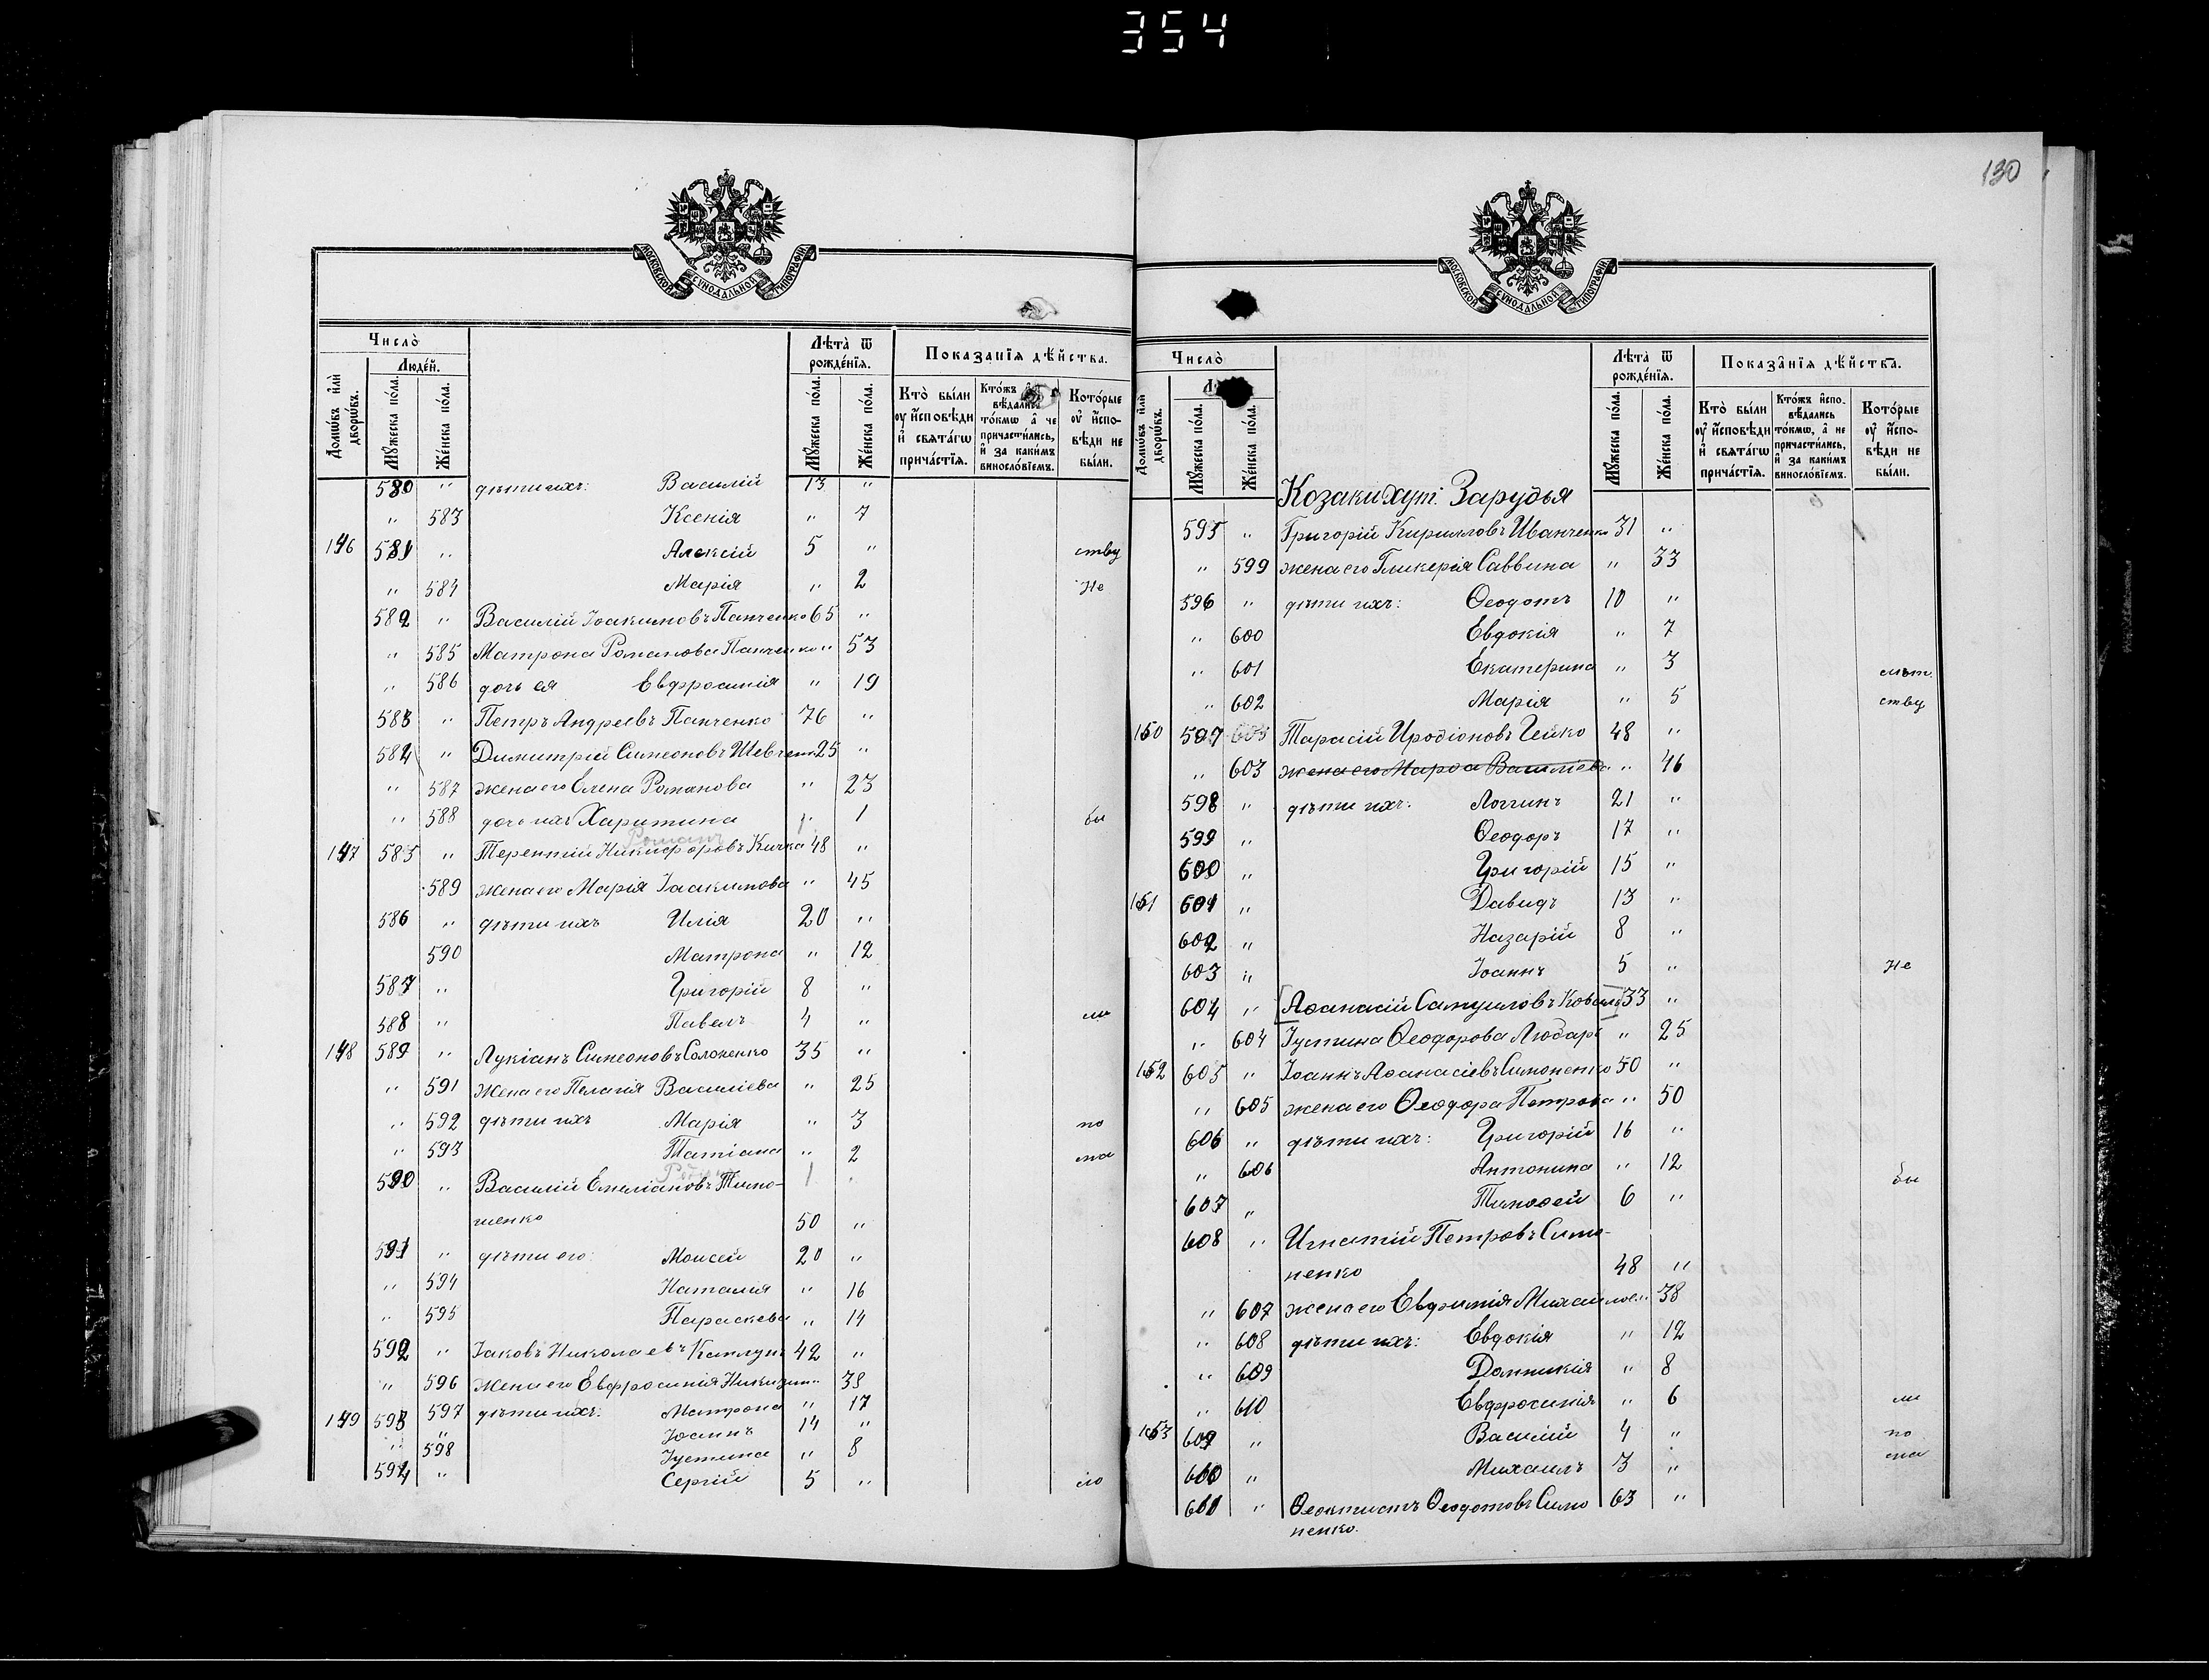 354
МОСКОВСКОЙ СѴНОДАЛЬНОЙ ТИПОГРАФІИ
Число̀
Люде́й.
Лѣта̀ ѿ рожде́нїѧ.
Показа́нїѧ дѣ́йства.
Домѡ́въ и҆лѝ дворѡ́въ.
Мꙋ́жеска по́ла.
Же́нска по́ла.
Мꙋ́жеска по́ла.
Же́нска по́ла.
Кто̀ бы́ли ᲂу҆ и҆́сповѣди и҆ свѧта́гѡ прича́стїѧ.
Кото́рые ᲂу҆ и҆́спо- вѣди не бы́ли.
580 " дѣти ихъ: Василій 13 "
" 583 Ксенія " 7
146 581 " Алексій 5 " ству
" 584 Марія " 2 Не
582 " Василій Іоакимовъ Панченко 65 "
" 585 Матрона Романова Панченко " 53
" 586 дочь ея Евфросинія " 19
583 " Петръ Андреевъ Панченко 76 "
584 " Димитрій Симеоновъ Шевченко 25 "
" 587 жена его Елена Романова " 23
" 588 дочь ихъ Харитина " 1 бы
Романъ
147 585 " Терентій Никифоровъ Кичка 48 "
589 жена его Марія Іоакимова " 45
586 " дѣти ихъ Илія 20 "
590 Матрона " 12
587 " Григорій 8 "
588 " Павелъ 4 " ли
148 589 " Лукіанъ Симеоновъ Солоненко 35 "
" 591 Жена его Пелагія Василіева " 25
" 592 дѣти ихъ Марія " 3 по
" 593 Татіана " 2 ма
590 " Василій Емеліановъ Тимо-
шенко 50 "
591 " дѣти его: Моисей 20 "
" 594 Наталія " 16
" 595 Параскева " 14
592 " Іаковъ Николаевъ 42 "
" 596 Жена его Евфросинія " 38
149 593 597 дѣти ихъ: Матрона " 17
" " Іоаннъ 14 "
598 Іустина " 8
594 " Сергій 5 " ло
130
МОСКОВСКОЙ СѴНОДАЛЬНОЙ ТИПОГРАФІИ
Число̀
Лѣта̀ ѿ рожде́нїѧ.
Показа́нїѧ дѣ́йства.
Домѡ́въ и҆лѝ дворѡ́въ.
Мꙋ́жеска по́ла.
Же́нска по́ла.
Мꙋ́жеска по́ла.
Же́нска по́ла.
Кто̀ бы́ли ᲂу҆ и҆́сповѣди и҆ свѧта́гѡ прича́стїѧ.
Кто́жъ и҆спо- вѣ́дались то́кмѡ, а҆ не причасти́лись, и҆ за каки́мъ виносло́вїемъ.
Кото́рые ᲂу҆ и҆́спо- вѣди не бы́ли.
Козаки хут. Зарудья
595 " Григорій Кирилловъ Иванченко 31 "
" 599 жена его Гликерія Саввина " 33
596 " дѣти ихъ: Ѳеодотъ 10 "
" 600 Евдокія " 7
" 601 Екатерина " 3
" 602 Марія " 5 ству
150 597 Тарасій Иродіоновъ Гейко 48 "
" 603 жена его Марѳа Василіева " 46
598 " дѣти ихъ: Логгинъ 21 "
599 " Ѳеодоръ 17 "
600 " Григорій 15 "
151 601 " Давидъ 13 "
602 " Назарій 8 "
603 " Іоаннъ 5 " Не
604 " [Аѳанасій Самуиловъ Коваль] 33 "
" 604 Іустина Ѳеодорова Любарь " 25
152 605 " Іоаннъ Аѳанасіевъ Симоненко 50 "
" 605 жена его Ѳеодора Петрова " 50
606 " дѣти ихъ: Григорій 16 "
" 606 Антонина " 12 бы
607 " Тимоѳей 6 "
608 " Игнатій Петровъ Симо-
ненко 48 "
" 607 жена его Евфимія Михайлов. " 38
" 608 дѣти ихъ: Евдокія " 12
" 609 Домникія " 8
" 610 Евфросинія " 6 ли
153 609 " Василій 4 " по
610 " Михаилъ 3 " ма
611 " Ѳеоктистъ Ѳеодотовъ Симо 63 "
ненко.